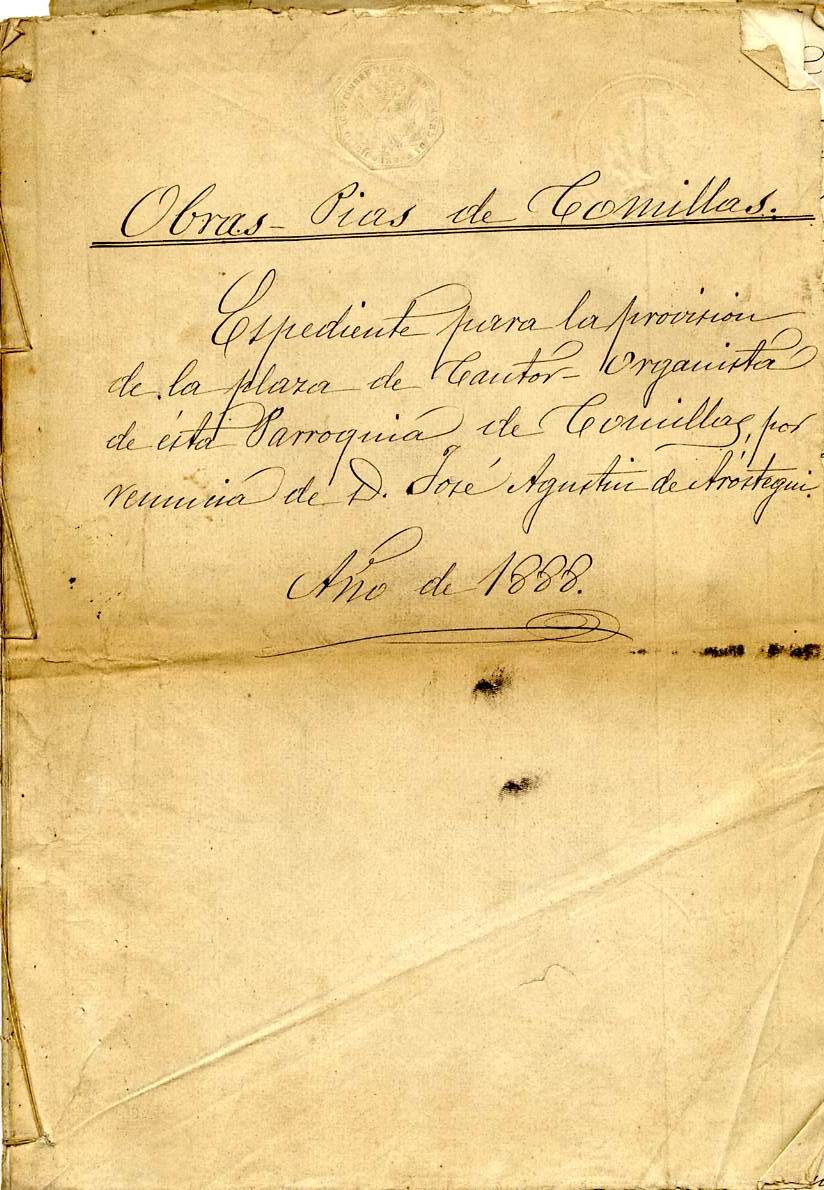 Obras Pias de Comillas.
Espediente para la provision
de la plaza de Cantor-Organista
de ésta Parroquia de Comillas, por
renuncia de D. José Agustin de Aróstegui.
Año de 1888.